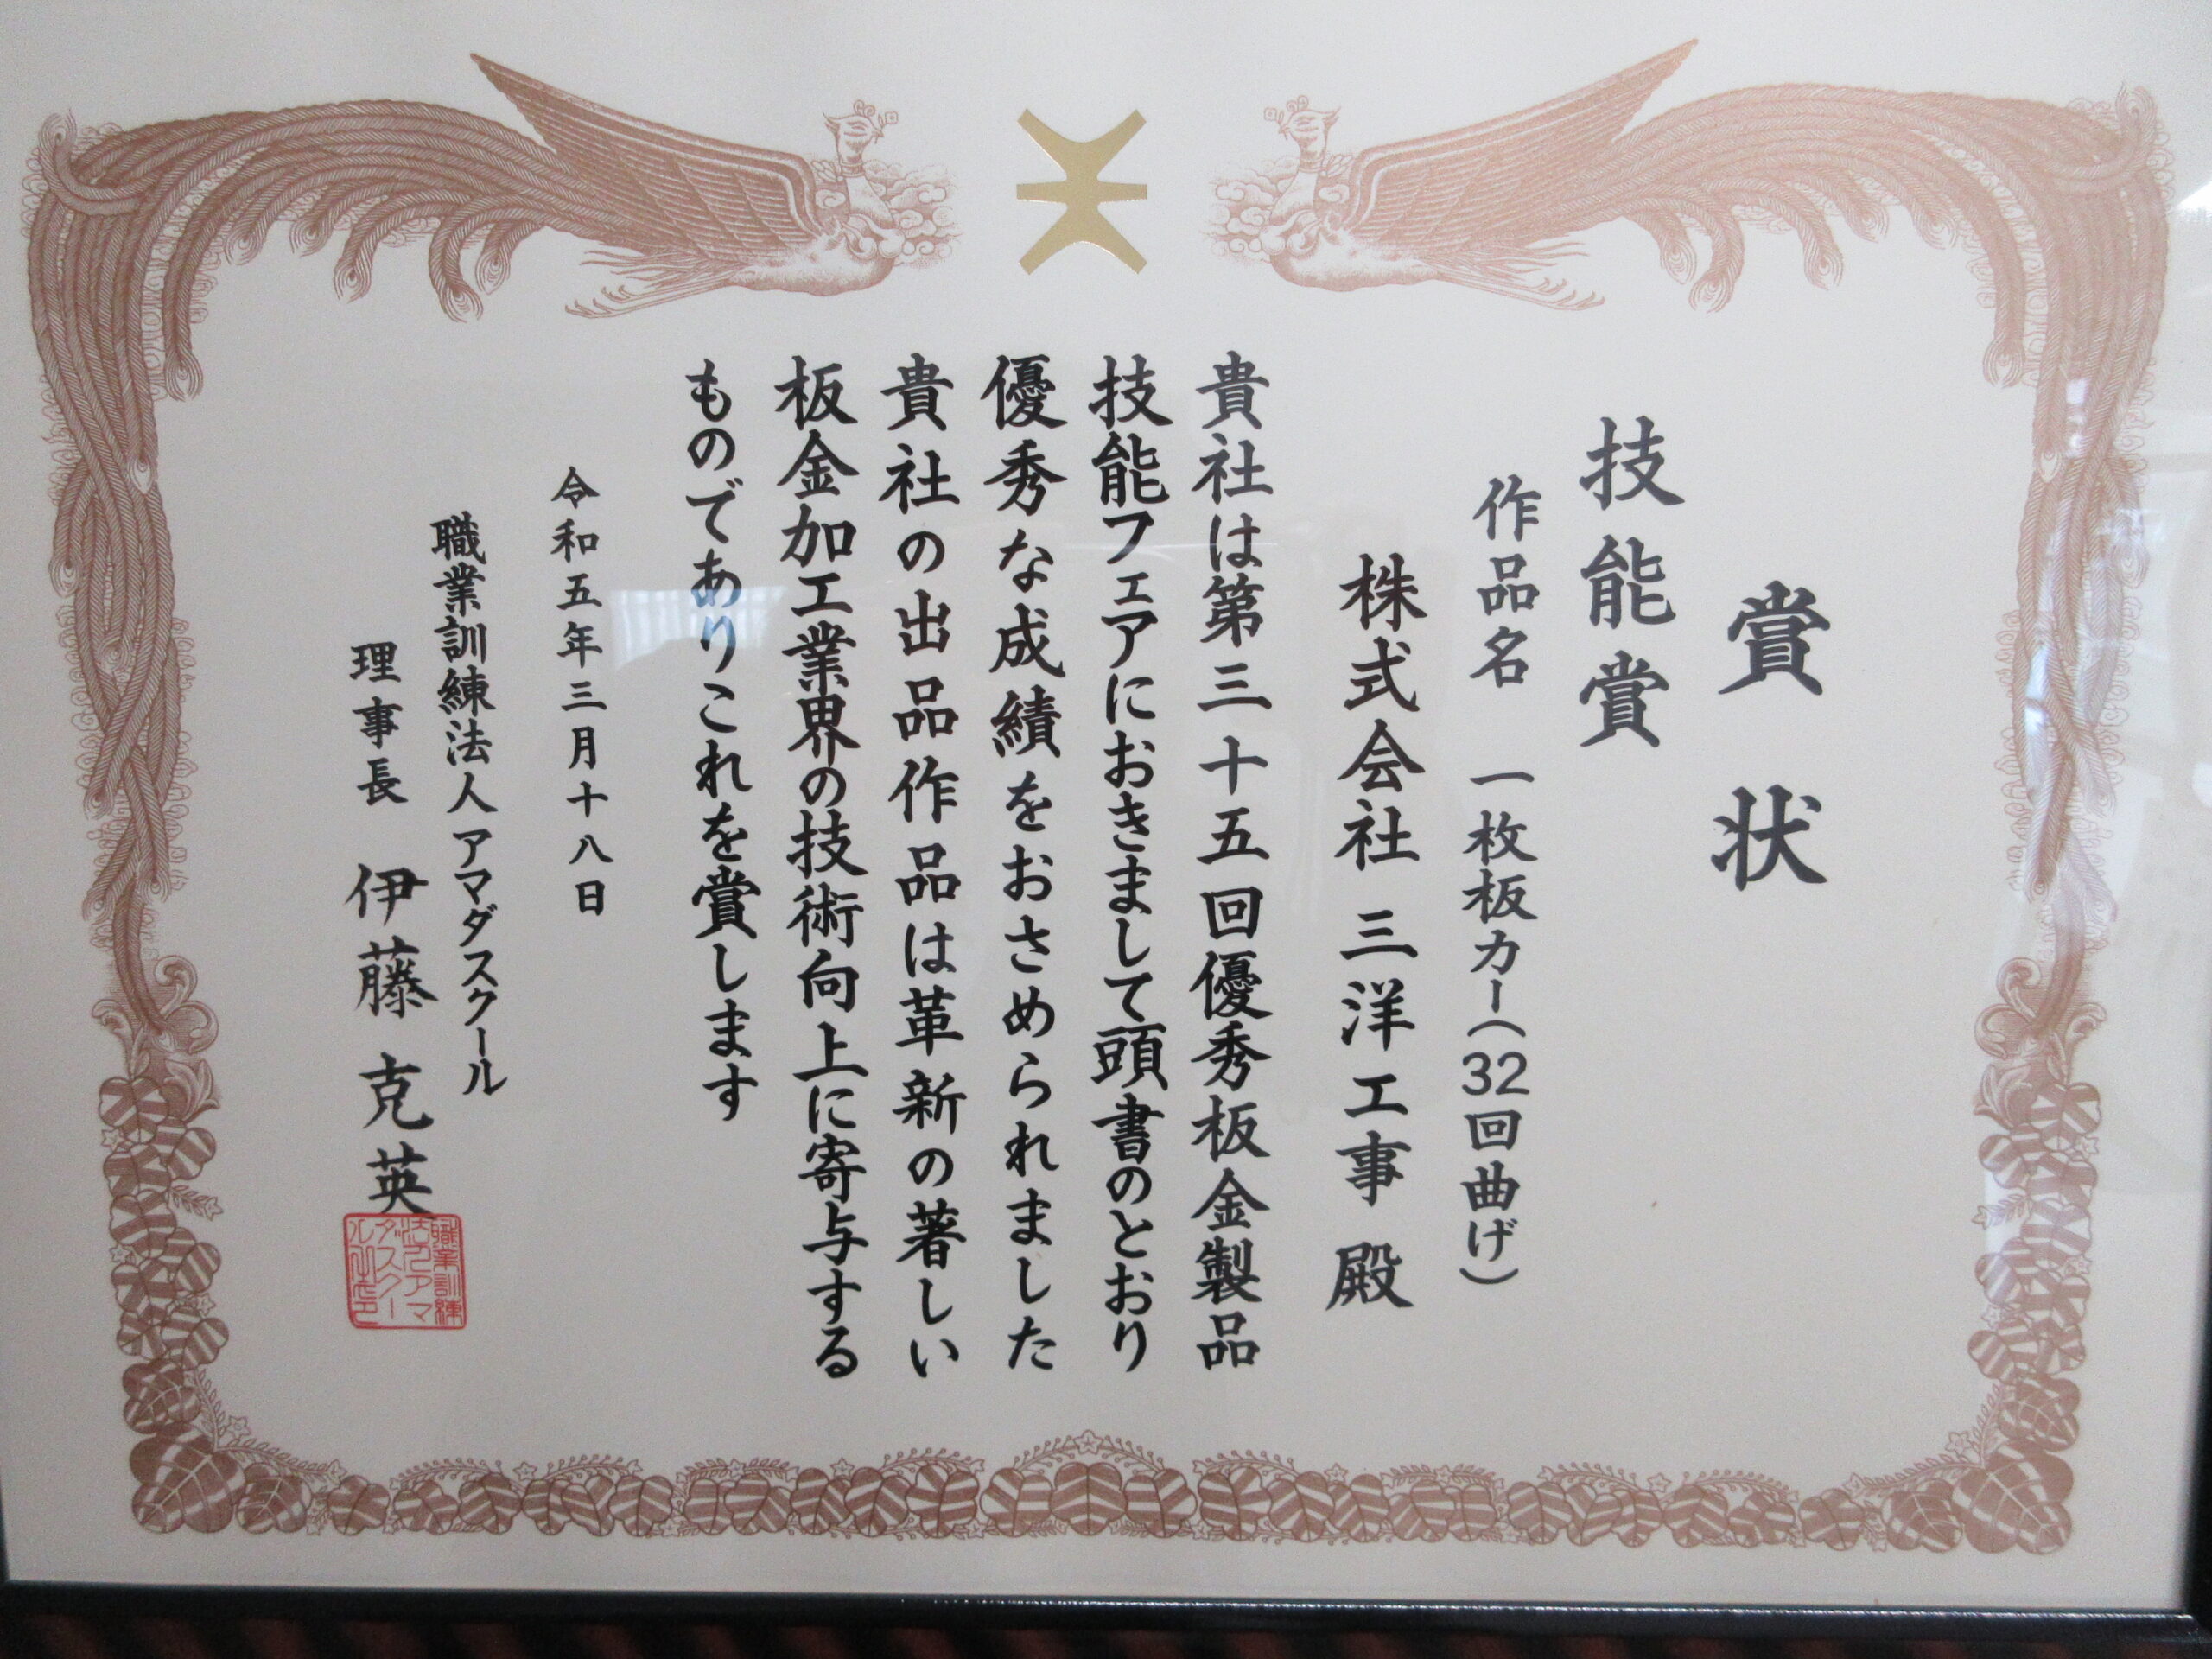 賞状
技能賞
作品名 一枚板カー(32回曲げ)
株式会社 三洋工事 殿
貴社は第三十五回優秀板金製品
技能フェアにおきまして頭書のとおり
優秀な成績をおさめられました
貴社の出品作品は革新の著しい
板金加工業界の技術向上に寄与する
ものでありこれを賞します
令和五年三月十八日
職業訓練法人アマダスクール
理事長 伊藤克英
職業訓練
法人アマ
ダスクー